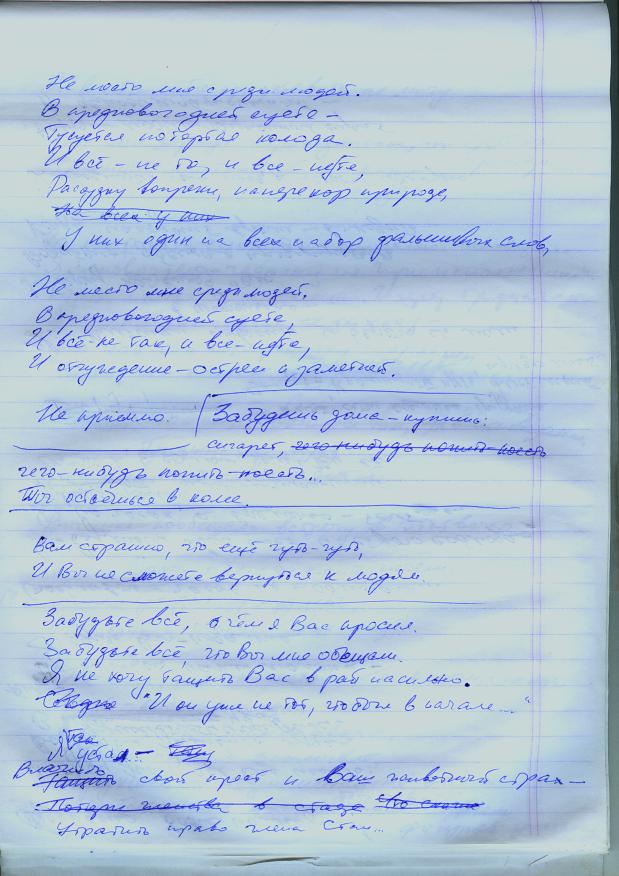 Не место мне среди людей.
В предновогодней суете –
Тусуется потёртая колода.
И всё – не то, и все – не те,
Рассудку вопреки, наперекор природе,
На всех у них
У них один на всех набор фальшивых слов,
Не место мне средь людей.
В предновогодней суете,
И всё – не так, и все – не те,
И отчуждение – острей и заметней.
Не красиво.
Забудешь дома – купишь:
сигарет, чего-нибудь попить-поесть
чего-нибудь попить-поесть...
Ты остаёшься в коме.
Вам страшно, что ещё чуть-чуть,
И Вы не сможете вернуться к людям.
Забудьте всё, о чём я Вас просил.
Забудьте всё, что Вы мне обещали.
Я не хочу тащить Вас в рай насильно.
"И он уже не тот, что был в начале..."
Я устал –
Влачить
Тащить свой крест и Ваш животный страх –
Потери членства в стаде
Утратить право члена Стаи...